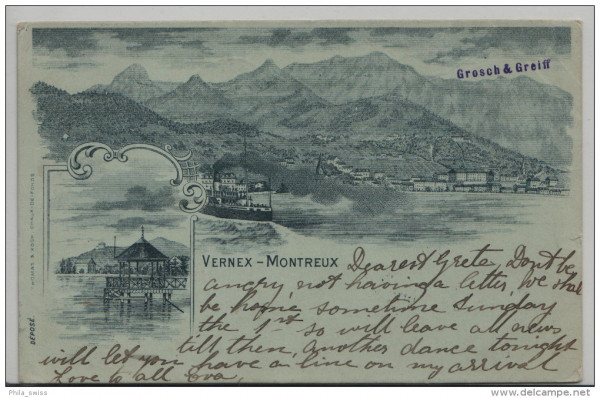 Grosch & Greiff
VERNEX - MONTREUX
Dearest Grete, Dont be
angry not having a letter, we shal
be home sometime Sunday
the 1st so will leave all news
till then, another dance tonight
will let you have a line on my arrival
Love to all Eva,
DÉPOSÉ
Phila_swiss
delcampe.net